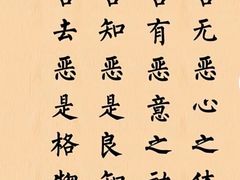 无恶心之体
有恶意之动
知恶是良知
去恶是格物